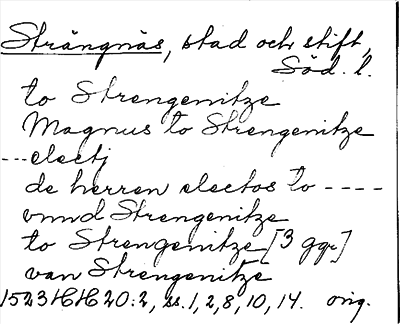 Strängnäs, stad och stift,
Söd. l.
to Strengenitze
Magnus to Strengenitze
---electj
de herren electos to ----
vnnd Strengenitze
to Strengenitze [3 ggr]
van Strengenitze
1523 20:2, s. 1, 2, 8, 10, 14. orig.